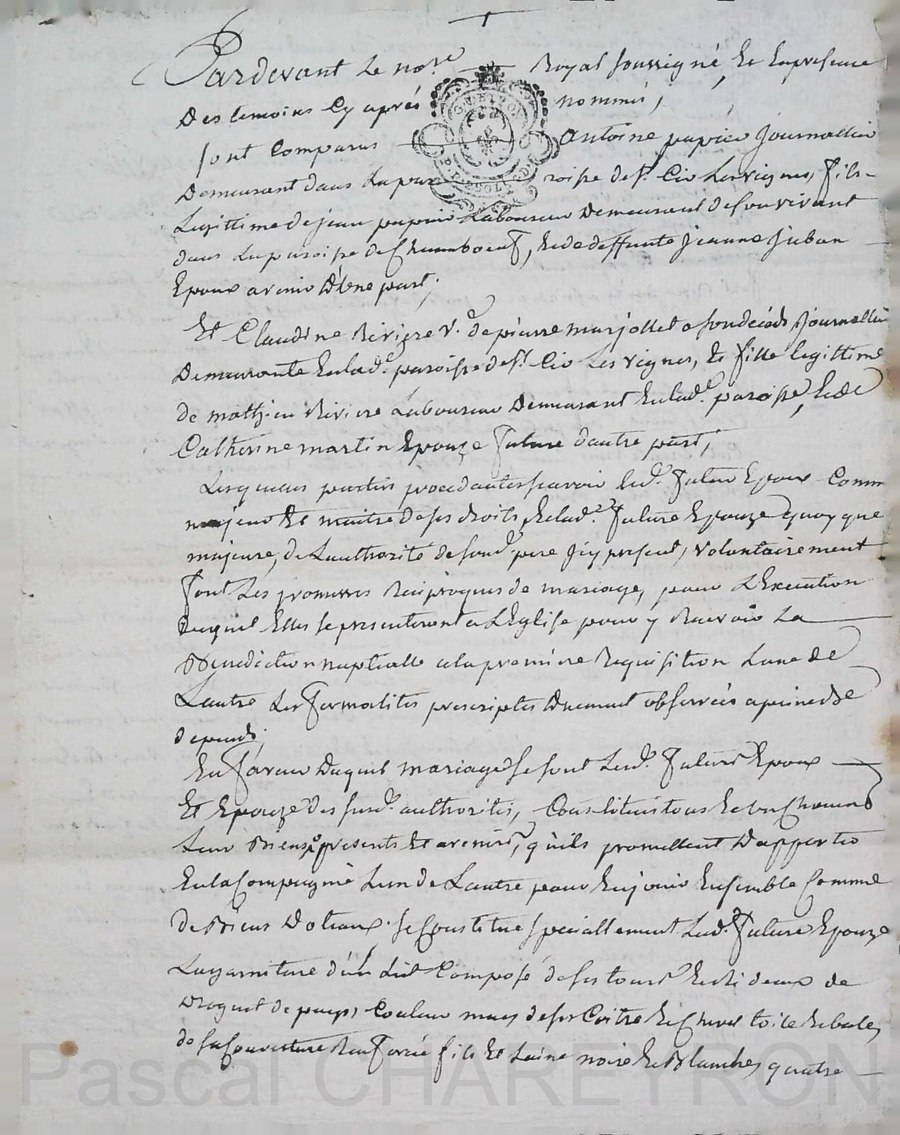 Pardevant Le nore Royal soussigné, Et En presence
Des temoins Cy aprés nommés,
Sont Comparus Antoine papier Journallier
Demeurant dans La paroisse de St. Cir Les vignes, fils
Legittime de jean papier Laboureur Demeurant de son vivant
dans La paroisse de Chamboeuf, Et de deffunte jeanne juban
Epoux avenir D'une part;
Et Claudine Riviere Ve. de pierre marjollet a son deceds Journallier
Demeurante En lad. paroisse de St. Cir Les vignes, Et fille legittime
de mathieu Riviere Laboureur Demeurant En lad. paroisse, Et de
Catherine martin Epouze future d'autre part;
Lesquelles parties procedantes scavoir led. futur Epoux Comme
majeur Et maitre de ses droits, Et lad. future Epouze quoy que
majeure, de L'authorité de sond. pere icy present, volontairement
font Les promesses Reciproques de mariage, pour L'Execution
Duquel Elles se presenteront a L'Eglise pour y Recevoir La
Benediction nuptialle a la premiere Requisition L'une de
L'autre Les formalites prescriptes Duement observées a peine de
depends;
En faveur Duquel mariage se sont Lesd. futurs Epoux
Et Epouze des susd. authorités, Constitués tous Et un Chacuns
Leurs Biens presents Et avenirs, qu'ils promettent D'apporter
En la Compagnie L'un de L'autre pour En jouir Ensemble Comme
de Biens Dotaux. se Constitue speciallement Lad. future Epouze
La garniture d'un Lit Composé de ses tours Et Rideaux de
Droguet de pays, Couleur de ses Coitre Et Chevet toile
de sa Couverture fils Et Laine noire Et Blanche, quatre
Pascal CHAREYRON